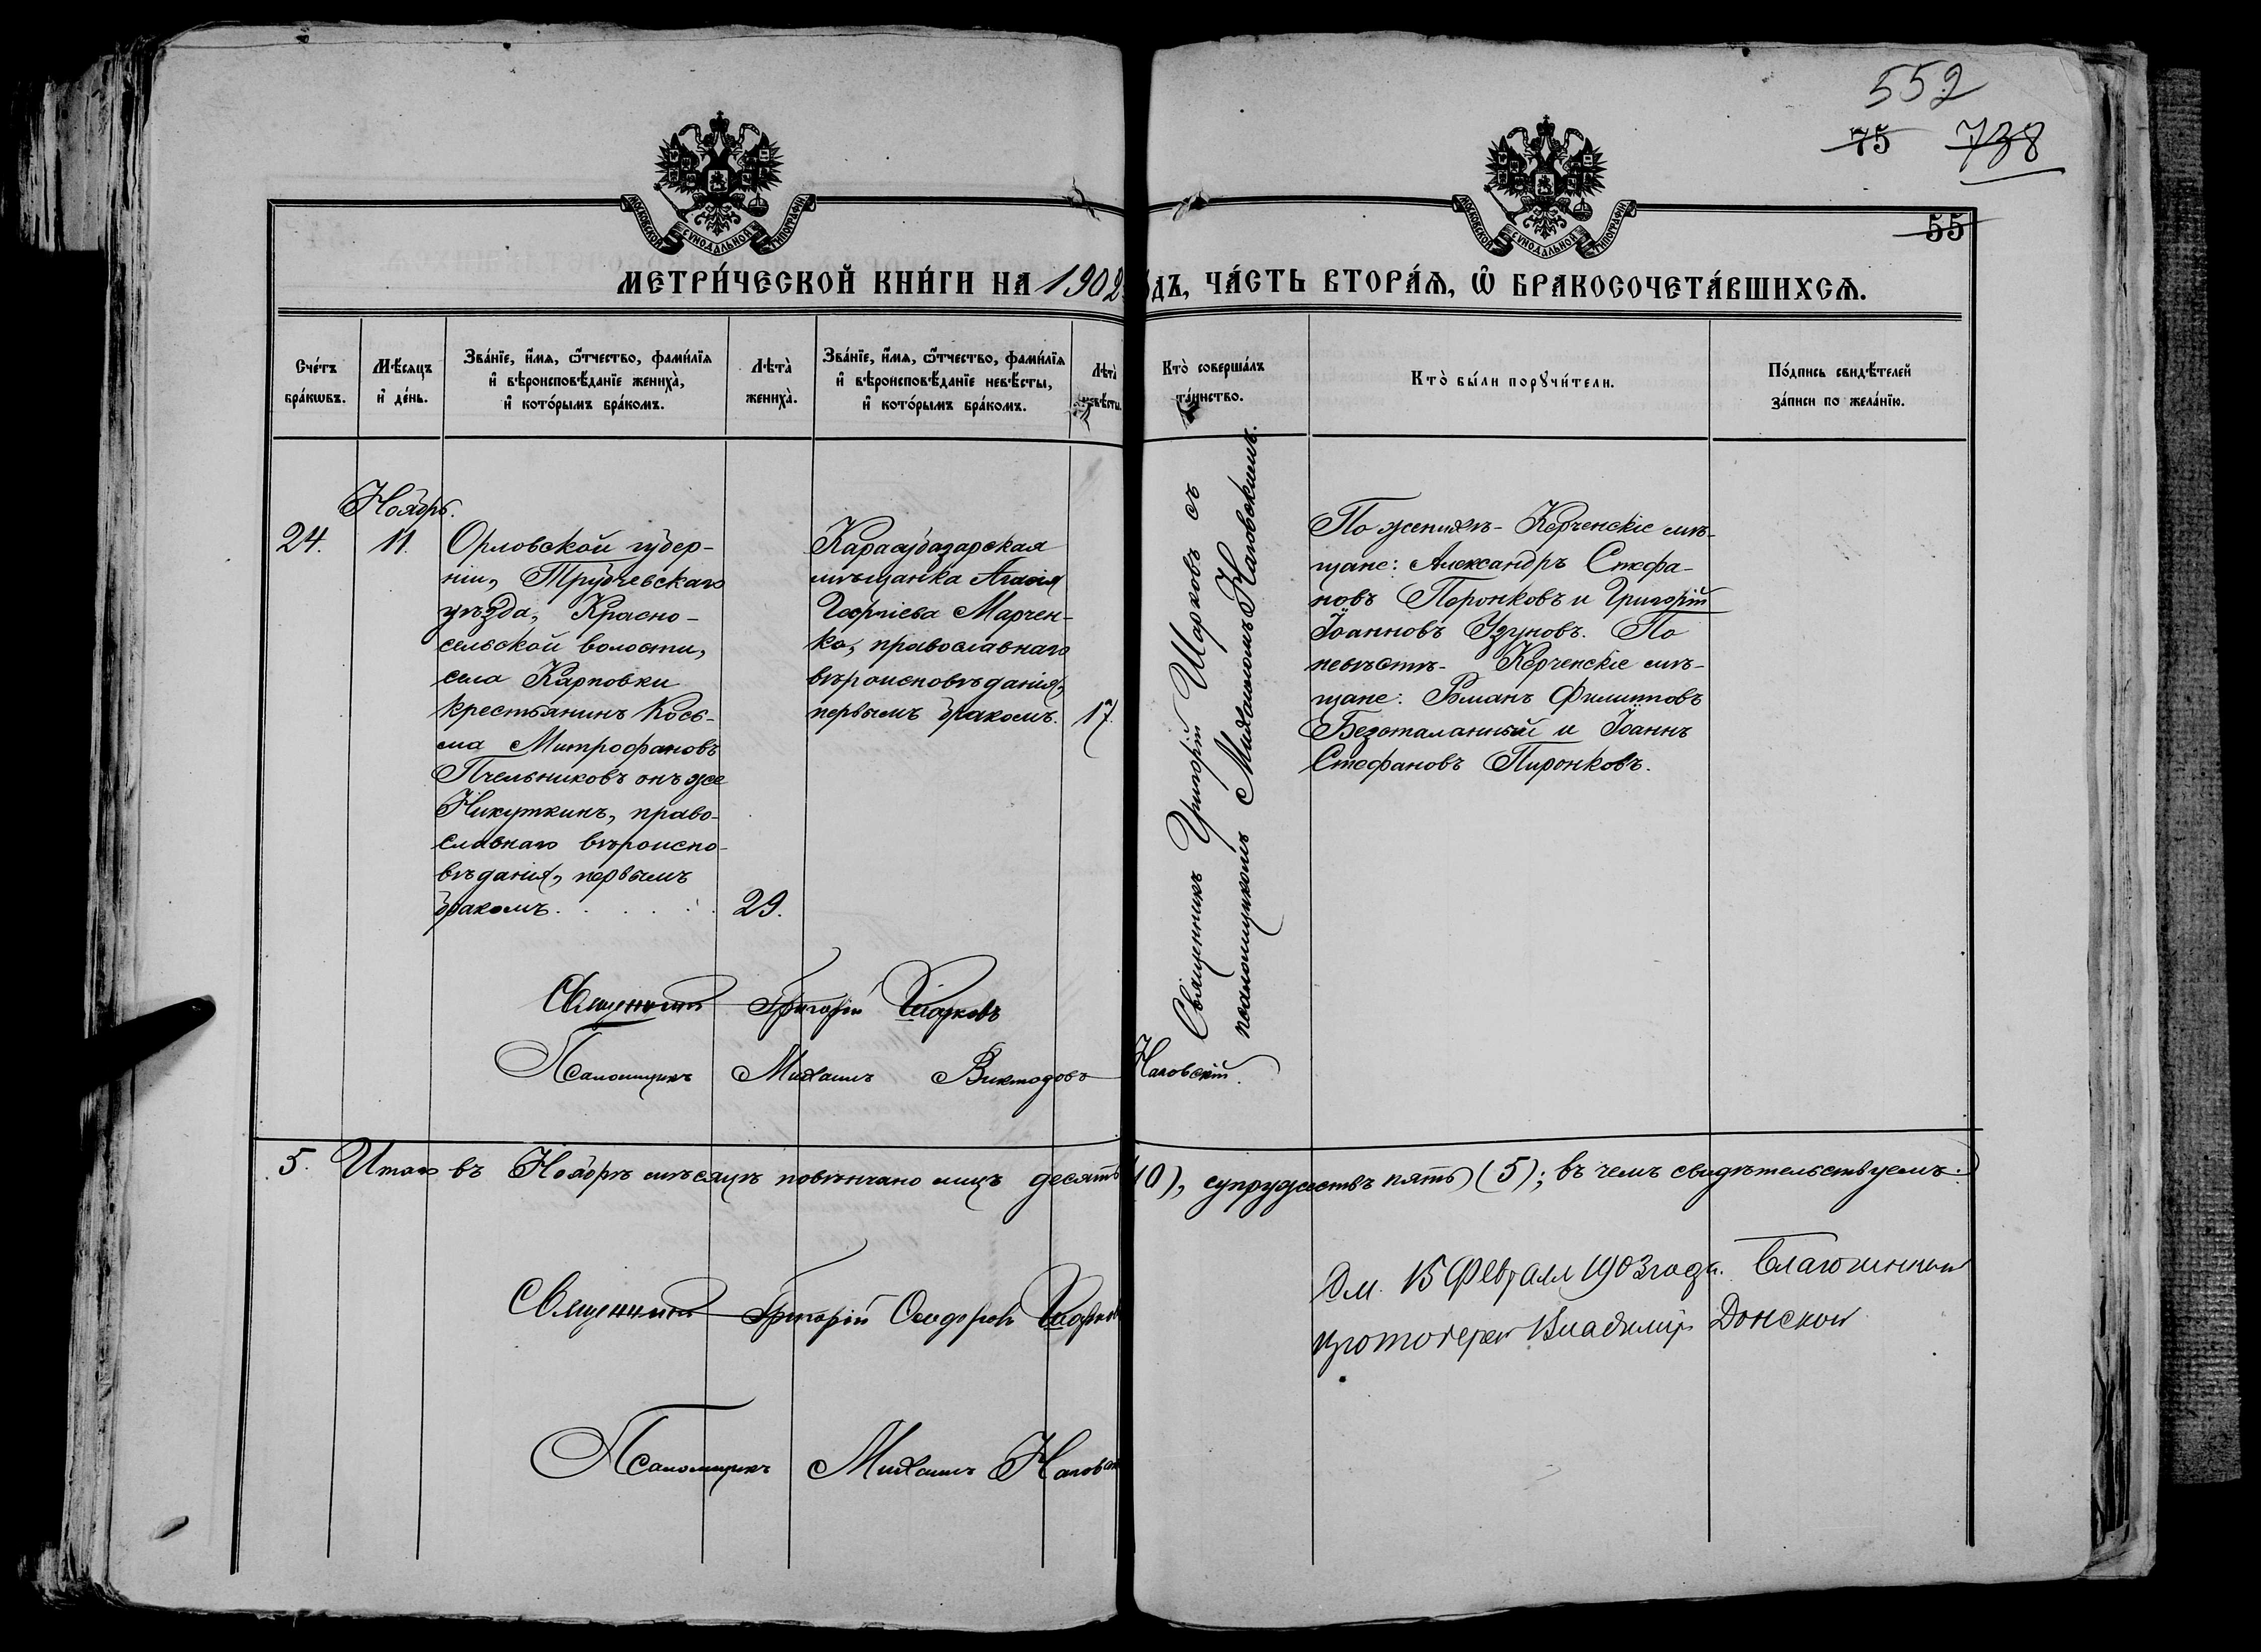 552
75 738
55
МОСКОВСКОЙ СѴНОДАЛЬНОЙ ТИПОГРАФІИ
МОСКОВСКОЙ СѴНОДАЛЬНОЙ ТИПОГРАФІИ
МЕТРИ́ЧЕСКОЙ КНИ́ГИ НА 1902 ДЪ, ЧА́СТЬ ВТОРА́Ѧ, Ѽ БРАКОСОЧЕТА́ВШИХСѦ.
Сче́тъ
бра́кѡвъ.
Мѣ́сяцъ
и҆ де́нь.
Зва́нїе, и҆́мя, ѻ҆́тчество, фами́лїя
и҆ вѣроисповѣ́данїе жениха̀,
и҆ кото́рымъ бра́комъ.
Лѣта̀
жениха̀.
Зва́нїе, и҆́мя, ѻ҆́тчество, фами́лїя
и҆ вѣроисповѣ́данїе невѣ́сты,
и҆ кото́рымъ бра́комъ.
Лѣта̀
невѣ́сты.
Кто̀ соверша́лъ
та́инство.
Кто̀ бы́ли порꙋчи́тели.
По́дпись свидѣ́телей
за́писи по жела́нїю.
Ноябрь.
24.
11.
Орловской губер-
ніи, Трубчевскаго
уѣзда, Красно-
сельской волости,
села Карповки
крестьянинъ Кось-
ма Митрофановъ
Пчельниковъ онъ же
Никуткинъ, право-
славнаго вѣроиспо-
вѣданія, первымъ
бракомъ. . . . . .
29.
Карасубазарская
мѣщанка Агафія
Георгіева Марчен-
ко, православнаго
вѣроисповѣданія,
первымъ бракомъ.
17.
Священникъ Григорій Шарковъ съ
псаломщикомъ Михаиломъ Наговскимъ.
По женихѣ - Керченскіе мѣ-
щане: Александръ Стефа-
новъ Пиронковъ и Григорій
Іоанновъ Узуновъ. По
невѣстѣ - Керченскіе мѣ-
щане: Романъ Филипповъ
Безталанный и Іоаннъ
Стефановъ Пиронковъ.
Священникъ Григорій Шарковъ
Псаломщикъ Михаилъ Викторовъ Наговскій.
5. Итого въ Ноябрѣ мѣсяцѣ повѣнчано лицъ десять (10), супружествъ пять (5); въ чемъ свидѣтельствуемъ:
Священникъ Григорій Ѳеодоровъ Шарковъ
Псаломщикъ Михаилъ Наговскій
15 Февраля 1903 года. Благочинный
протоіерей Владиміръ Донской